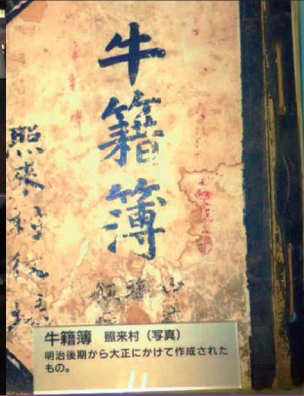 牛籍簿
照来村役場
牛籍簿 照来村（写真）
明治後期から大正にかけて作成された
もの。